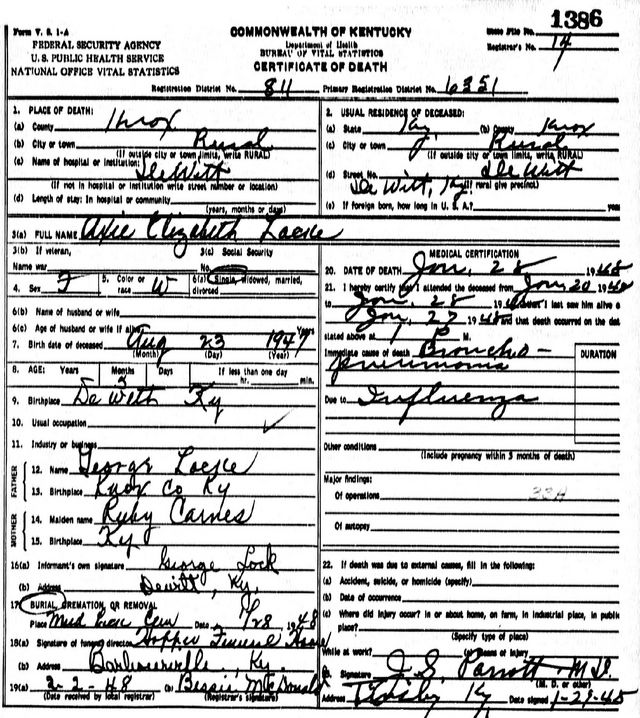 1386
Form V. S. 1-A
COMMONWEALTH OF KENTUCKY
State File No.
FEDERAL SECURITY AGENCY
Department of Health
Registrar's No. 14
U.S. PUBLIC HEALTH SERVICE
BUREAU OF VITAL STATISTICS
NATIONAL OFFICE VITAL STATISTICS
CERTIFICATE OF DEATH
Registration District No. 811 Primary Registration District No. 6351
1. PLACE OF DEATH:
(a) County Knox
(b) City or town Rural
(If outside city or town limits, write RURAL)
(c) Name of hospital or institution: DeWitt
(If not in hospital or institution write street number or location)
(d) Length of stay: In hospital or community
(years, months or days)
2. USUAL RESIDENCE OF DECEASED:
(a) State Ky (b) County Knox
(c) City or town Rural
(If outside city or town limits, write RURAL)
(d) Street No. DeWitt
De Witt, Ky. (If rural give precinct)
(e) If foreign born, how long in U. S. A.? years
3(a) FULL NAME Axie Elizabeth Locke
3(b) If veteran,
Name war
3(c) Social Security
No.
4. Sex F 5. Color or race W 6(a) Single, widowed, married, divorced
6(b) Name of husband or wife
6(c) Age of husband or wife if alive years
7. Birth date of deceased Aug 23 1947
(Month) (Day) (Year)
8. AGE: Years Months Days If less than one day
5 hr. min.
9. Birthplace De Witt Ky
10. Usual occupation
11. Industry or business
FATHER
12. Name George Locke
13. Birthplace Knox Co Ky
MOTHER
14. Maiden name Ruby Carnes
15. Birthplace Ky
16(a) Informant's own signature George Lock
(b) Address Dewitt, Ky.
17. BURIAL, CREMATION, OR REMOVAL
Place Mud Lick Cem Date 1/28 1948
18(a) Signature of funeral director Hopper Funeral Home
(b) Address Barbourville, Ky.
19(a) 2-2-48 (b) Bessie McDonald
(Date received by local registrar) (Registrar's signature)
MEDICAL CERTIFICATION
20. DATE OF DEATH Jan. 28 1948
21. I hereby certify that I attended the deceased from Jan 20 1948
to Jan. 28 1948 that I last saw him alive o
Jan 27 1948 and that death occurred on the dat
stated above at 1 P M.
Immediate cause of death Broncho-
pneumonia
DURATION
Due to Influenza
Other conditions
(Include pregnancy within 3 months of death)
Major findings:
Of operations 33A
Of autopsy
22. If death was due to external causes, fill in the following:
(a) Accident, suicide, or homicide (specify)
(b) Date of occurrence
(c) Where did injury occur? In or about home, on farm, in industrial place, in public
place?
(Specify type of place)
While at work? (e) Means of injury
Signature J. S. Parrott M D.
(M. D. or other)
Address Ky Date signed 1-29-48